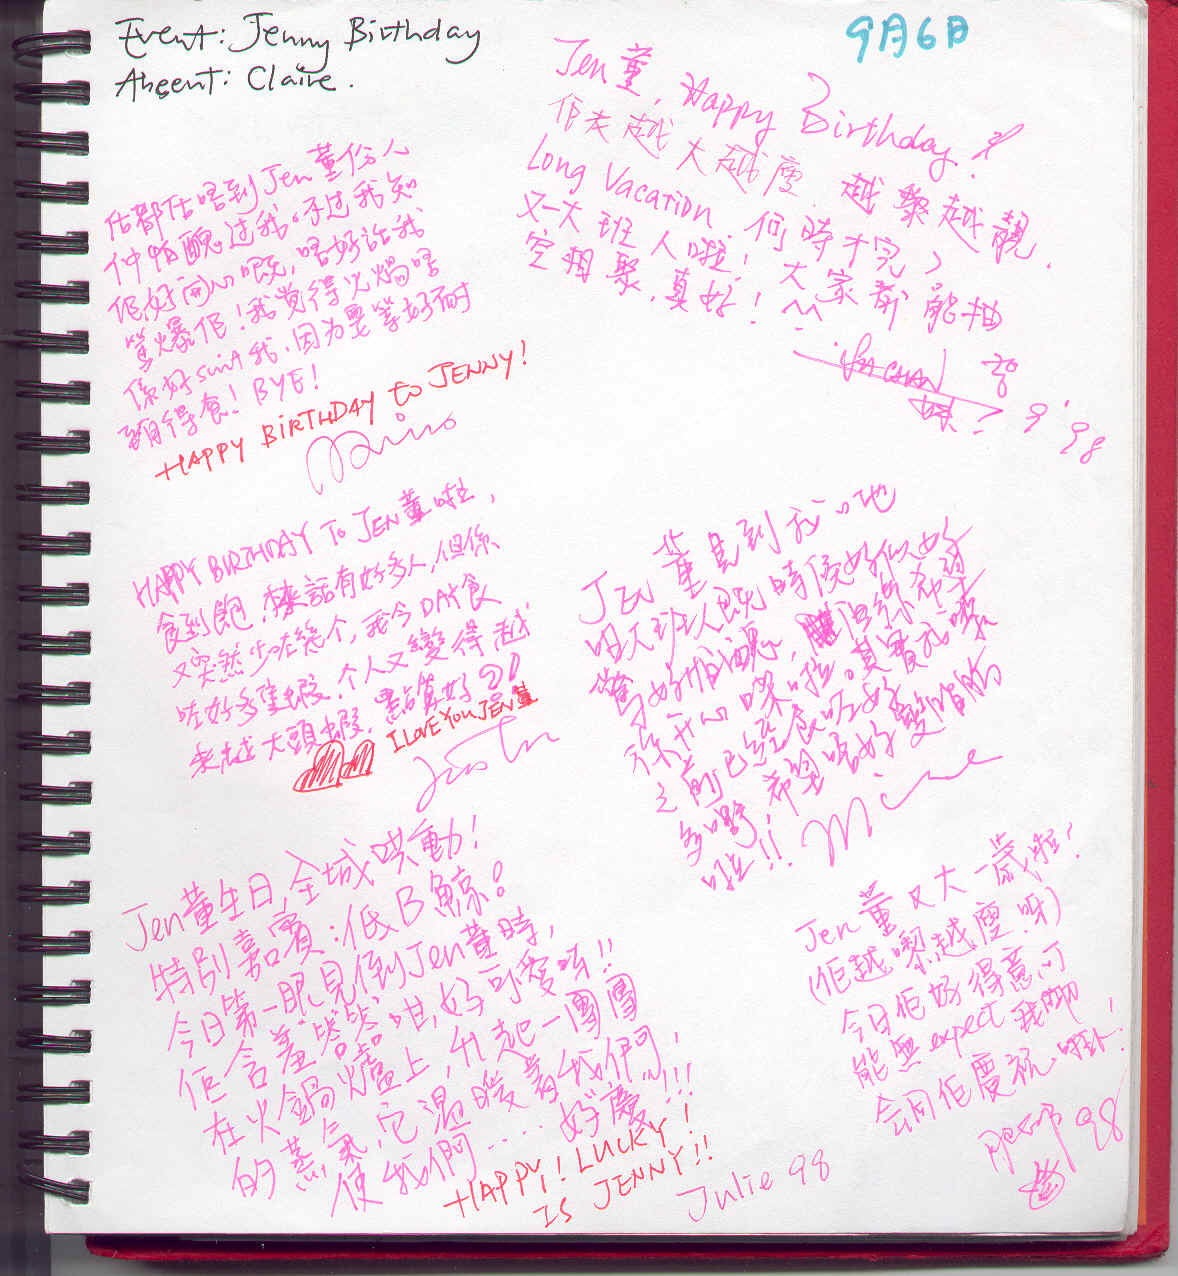 Event: Jenny Birthday
Absent: Claire.
9月6日
Jen董, Happy Birthday!
佢走越大越瘦, 越黎越靚.
Long Vacation 何時才完?
又一大班人啦! 大家都能抽
空相聚, 真好! ^^
CHAN
妹? 9'98
估都估唔到Jen董份人
仲怕醜過我。不過我知
佢好開心嘅, 唔好話我
篤爆佢! 我覺得火煱唔
係好suit我, 因為要等好耐
至有得食! BYE!
HAPPY BIRTHDAY to JENNY!
HAPPY BIRTHDAY To JEN董啦,
食到飽, 樣話有好多人, 但係
又突然少咗幾个, 我今DAY食
咗好多隻蝦, 个人又變得越
來越大頭蝦, 點算好
I LOVE YOU JEN董
Jen董見到我哋
咁大班人嘅時候好似好
驚好怕醜, 但係
係開心㗎啦。其實我哋
之前已經食咗好
多嘢, 希望唔好
啦!!
Jen董生日, 全城哄動!
特別嘉賓:低B鯨!
今日第一眼見倒Jen董時,
佢含羞答答咁, 好可愛呀!!
在火鍋爐上, 升起一團團
的蒸氣, 它溫暖着我們,
使我們....好慶!!!
HAPPY! LUCKY!
IS JENNY!!
Julie 98
Jen董又大一歲啦!
(佢越嚟越瘦呀)
今日佢好得意,可
能無expect我哋
会同佢慶祝啩!
98